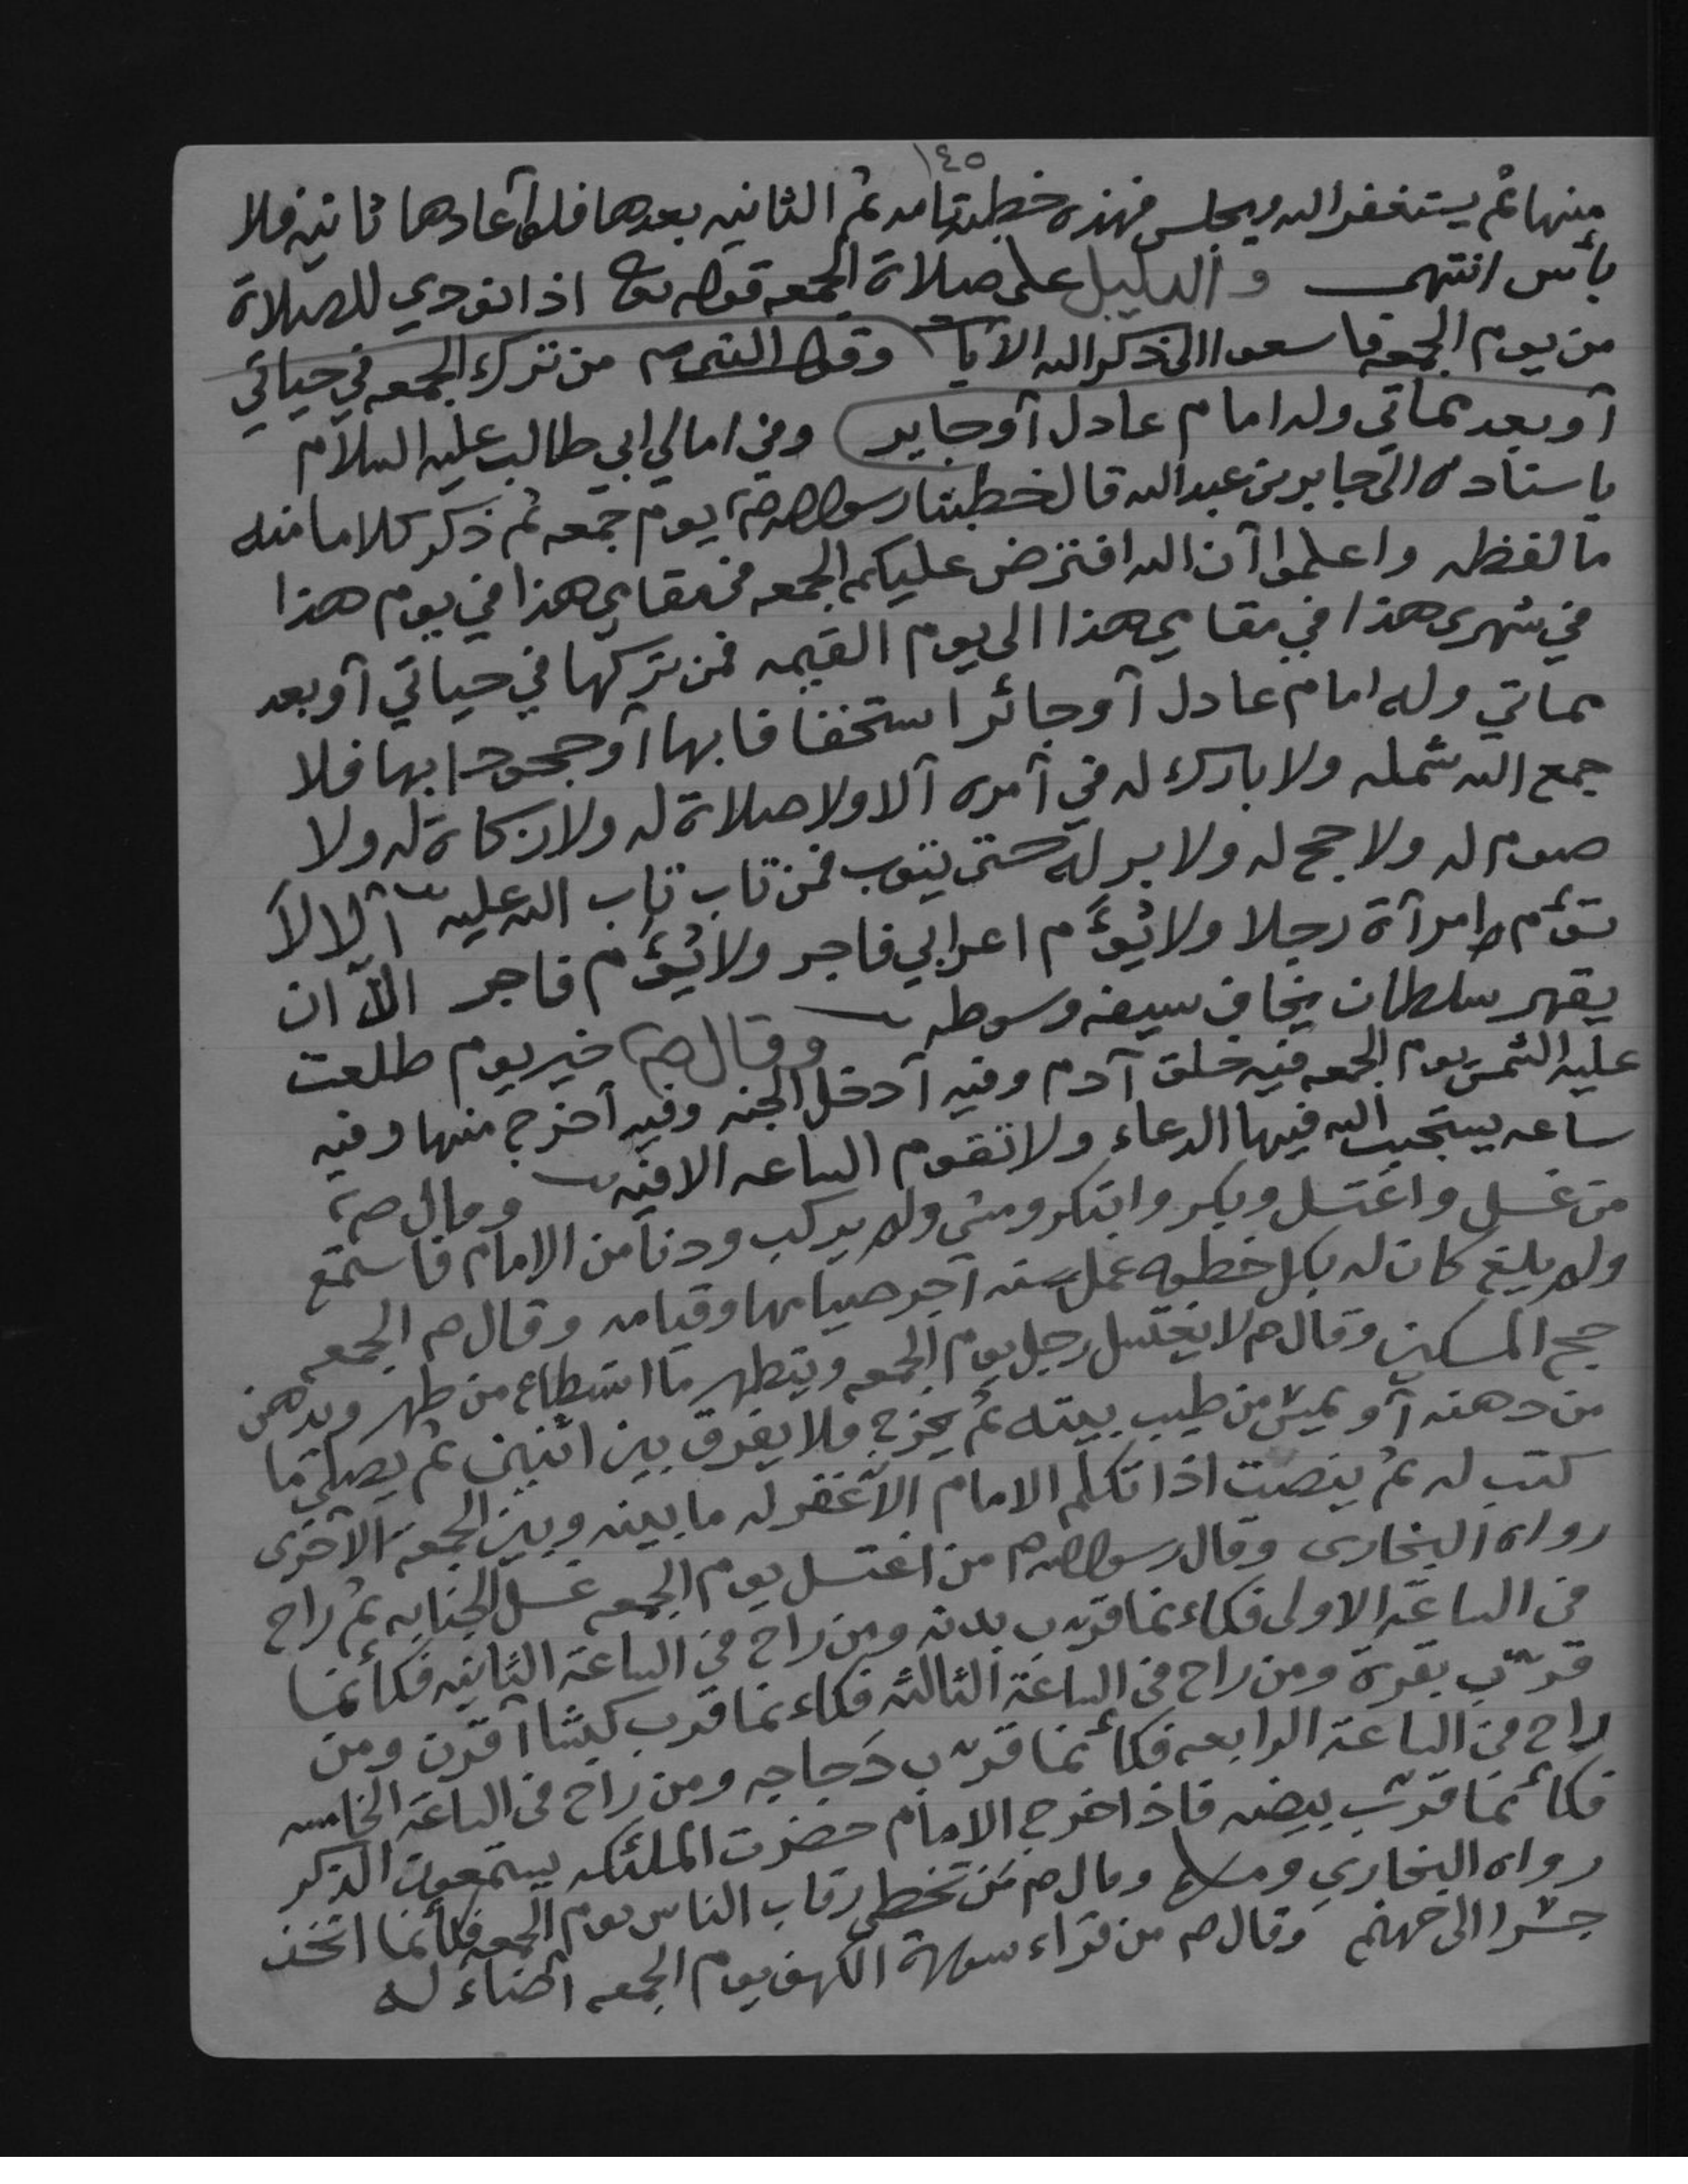 ١٤٥
منها ثم يستغفر الله ويجلس فهذه خطبة تامه ثم الثانيه بعدها فلو أعادها ثانيه فلا
بأس انتهى والدليل على صلاة الجمعه قوله تعالى اذا نودي للصلاة
من يوم الجمعه فاسعوا الى ذكر الله الآيات وقول النبي ص من ترك الجمعه في حياتي
أو بعد مماتي وله امام عادل أو جاير وفي امالي ابي طالب عليه السلام
باسناده الى جابر بن عبد الله قال خطبنا رسول الله ص يوم جمعه ثم ذكر كلاما منه
ما لفظه واعلموا أن الله افترض عليكم الجمعه في مقامي هذا في يوم هذا
في شهري هذا في مقامي هذا الى يوم القيمه فمن تركها في حياتي أو بعد
مماتي وله امام عادل أو جائر استخفافا بها أو جحودا بها فلا
جمع الله شمله ولا بارك له في أمره ألا ولا صلاة له ولا زكاة له ولا
صوم له ولا حج له ولا بر له حتى يتوب فمن تاب تاب الله عليه ألا لا
تؤم امرآة رجلا ولا يؤم اعرابي فاجر ولا يؤم فاجر الا ان
يقهر سلطان يخاف سيفه وسوطه وقال ص خير يوم طلعت
عليه الشمس يوم الجمعه فيه خلق آدم وفيه أدخل الجنه وفيه أخرج منها وفيه
ساعه يستجيب الله فيها الدعاء ولا تقوم الساعه الا فيه وقال ص
من غسل واغتسل وبكر وابتكر ومشى ولم يركب ودنا من الامام فاستمع
ولم يلغ كان له بكل خطوه عمل سنه أجر صيامها وقيامه وقال ص الجمعه
حج المسكين وقال ص لا يغتسل رجل يوم الجمعه ويتطهر ما استطاع من طهر ويدهن
من دهنه أو يمس من طيب بيته ثم يخرج فلا يفرق بين اثنين ثم يصلي ما
كتب له ثم ينصت اذا تكلم الامام الا غفر له ما بينه وبين الجمعة الآخرى
رواه البخارى وقال رسول الله ص من اغتسل يوم الجمعه غسل الجنابه ثم راح
في الساعة الاولى فكاءنما قرب بدنه ومن راح في الساعة الثانيه فكأنما
قرّب بقرة ومن راح في الساعة الثالثه فكاءنما قرب كبشا أقرن ومن
راح في الساعة الرابعه فكأنما قرّب دجاجه ومن راح في الساعة الخامسه
فكأنما قرّب بيضه فاذا خرج الامام حضرت الملئكه يستمعون الذكر
رواه البخاري ومسلم وقال ص من تخطى رقاب الناس يوم الجمعه فكأنما اتخذ
جسرا الى جهنم وقال ص من قراء سورة الكهف يوم الجمعه أضاء له